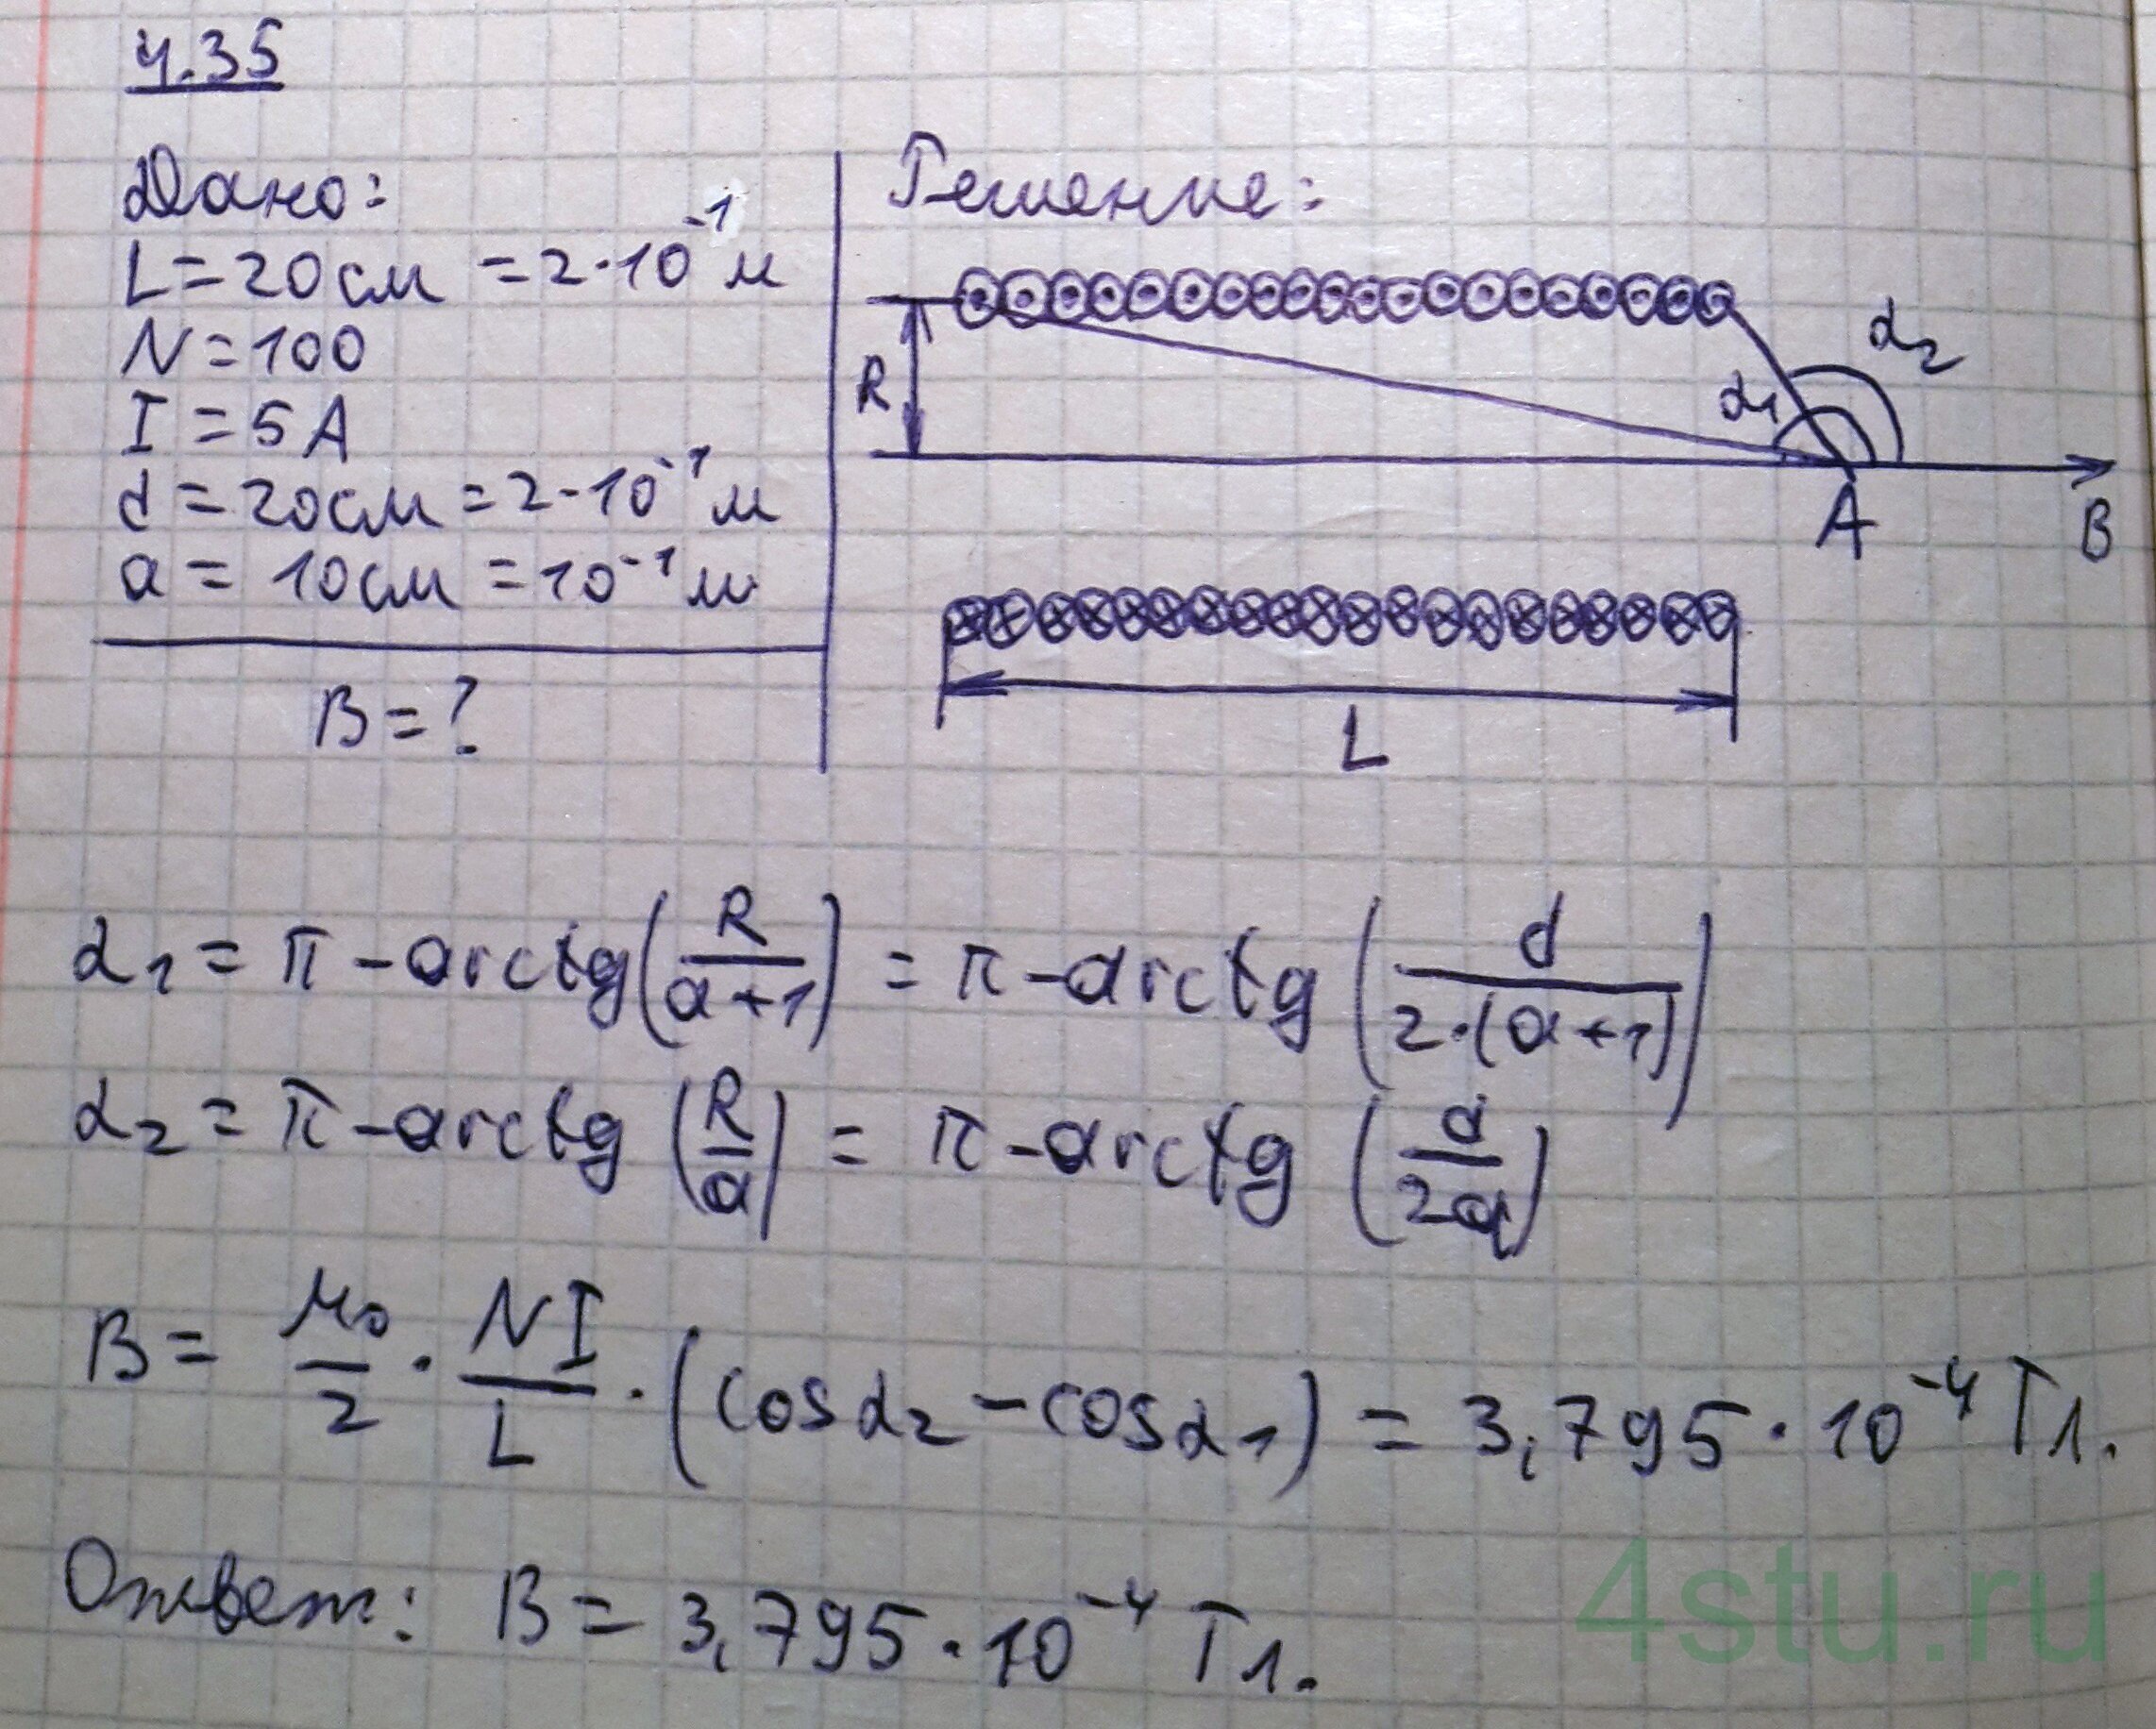 4.35
Дано:
L = 20 см = 2·10⁻¹ м
N = 100
I = 5 A
d = 20 см = 2·10⁻¹ м
a = 10 см = 10⁻¹ м
B = ?
Решение:
R
α₁
α₂
A
B
L
α₁ = π - arctg(R/(a+1)) = π - arctg(d/(2·(a+1)))
α₂ = π - arctg(R/a) = π - arctg(d/2a)
B = μ₀/2 · NI/L · (cosα₂ - cosα₁) = 3,795·10⁻⁴ Тл.
Ответ: B = 3,795·10⁻⁴ Тл.
4stu.ru